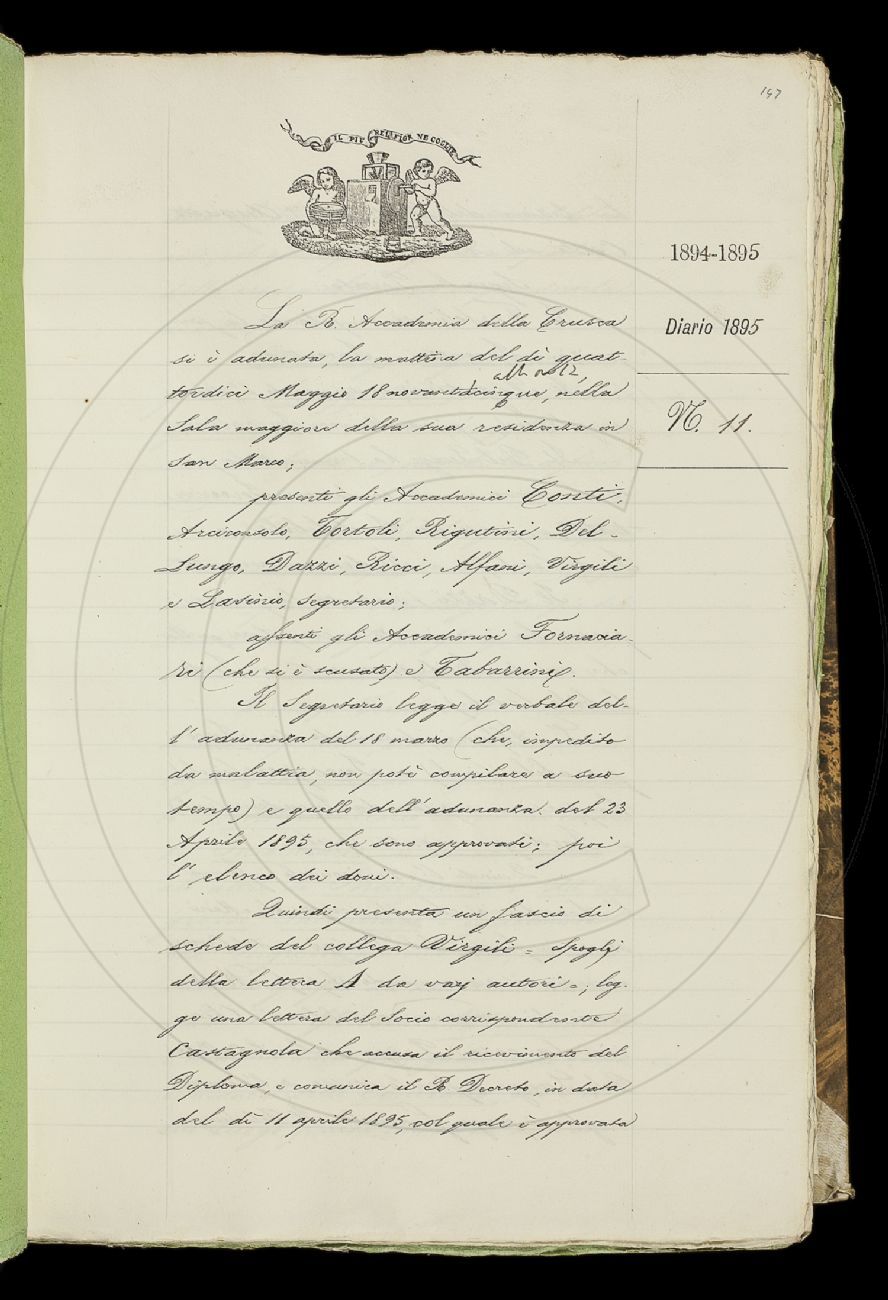 197
IL PIÙ BEL FIOR NE COGLIE
1894-1895
Diario 1895
N. 11.
La R. Accademia della Crusca
si è adunata, la mattina del dì quat-
tordici Maggio 18novantacinque, alle ore 12, nella
Sala maggiore della sua residenza in
San Marco;
presenti gli Accademici Conti.
Arciconsolo, Tortoli, Rigutini, Del-
Lungo, Dazzi, Ricci, Alfani, Virgili
e Lasinio, segretario;
assenti gli Accademici Fornacia-
ri (che si è scusato) e Tabarrini.
Il Segretario legge il verbale del-
l'adunanza del 18 marzo (che, impedito
da malattia, non potè compilare a suo
tempo) e quello dell'adunanza del 23
Aprile 1895, che sono approvati; poi
l'elenco dei doni.
Quindi presenta un fascio di
schede del collega Virgili = Spoglj
della lettera A da varj autori =; leg-
ge una lettera del Socio corrispondente
Castagnola che accusa il ricevimento del
Diploma, e comunica il R. Decreto, in data
del dì 11 aprile 1895, col quale è approvata